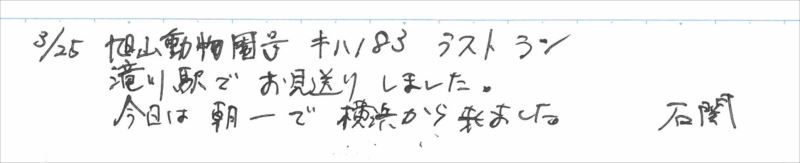 3/25 旭山動物園号 キハ183 ラストラン
滝川駅でお見送りしました。
今日は朝一で横浜から来ました。 石関